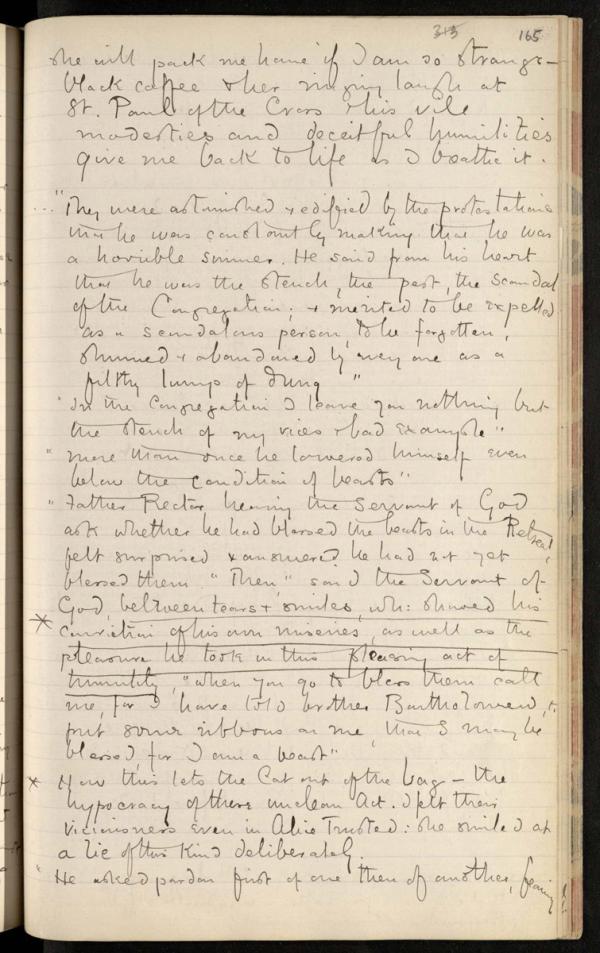 313 165
she will pack me home if I am so strange –
black coffee & her ringing laugh at
St. Paul of the Cross & his vile
modesties and deceitful humilities
give me back to life as I breathe it.
... "They were astonished & edified by the protestations
that he was constantly making that he was
a horrible sinner. He said from his heart
that he was the stench, the pest, the scandal
of the Congregation; & merited to be expelled
as a scandalous person, to be forgotten,
shunned & abandoned by every one as a
filthy lump of dung"
"In the Congregation I leave you nothing but
the stench of my vices & bad example"
"more than once he lowered himself even
below the condition of beasts"
"Father Rector hearing the Servant of God
ask whether he had blessed the beasts in the Retreat,
felt surprised & answered he had not yet
blessed them. "Then," said the Servant of
God, between tears & smiles, wh: showed his
conviction of his own miseries, as well as the
pleasure he took in this pleasing act of
humility, "when you go to bless them call
me, for I have told brother Bartholomew, to
put some ribbons on me, that I may be
blessed, for I am a beast"
Now this lets the Cat out of the bag – the
hypocracy of these unclean Act. I felt their
viciousness even in Alice Trusted: she smiled at
a lie of this kind deliberately.
"He asked pardon first of one then of another, fearing